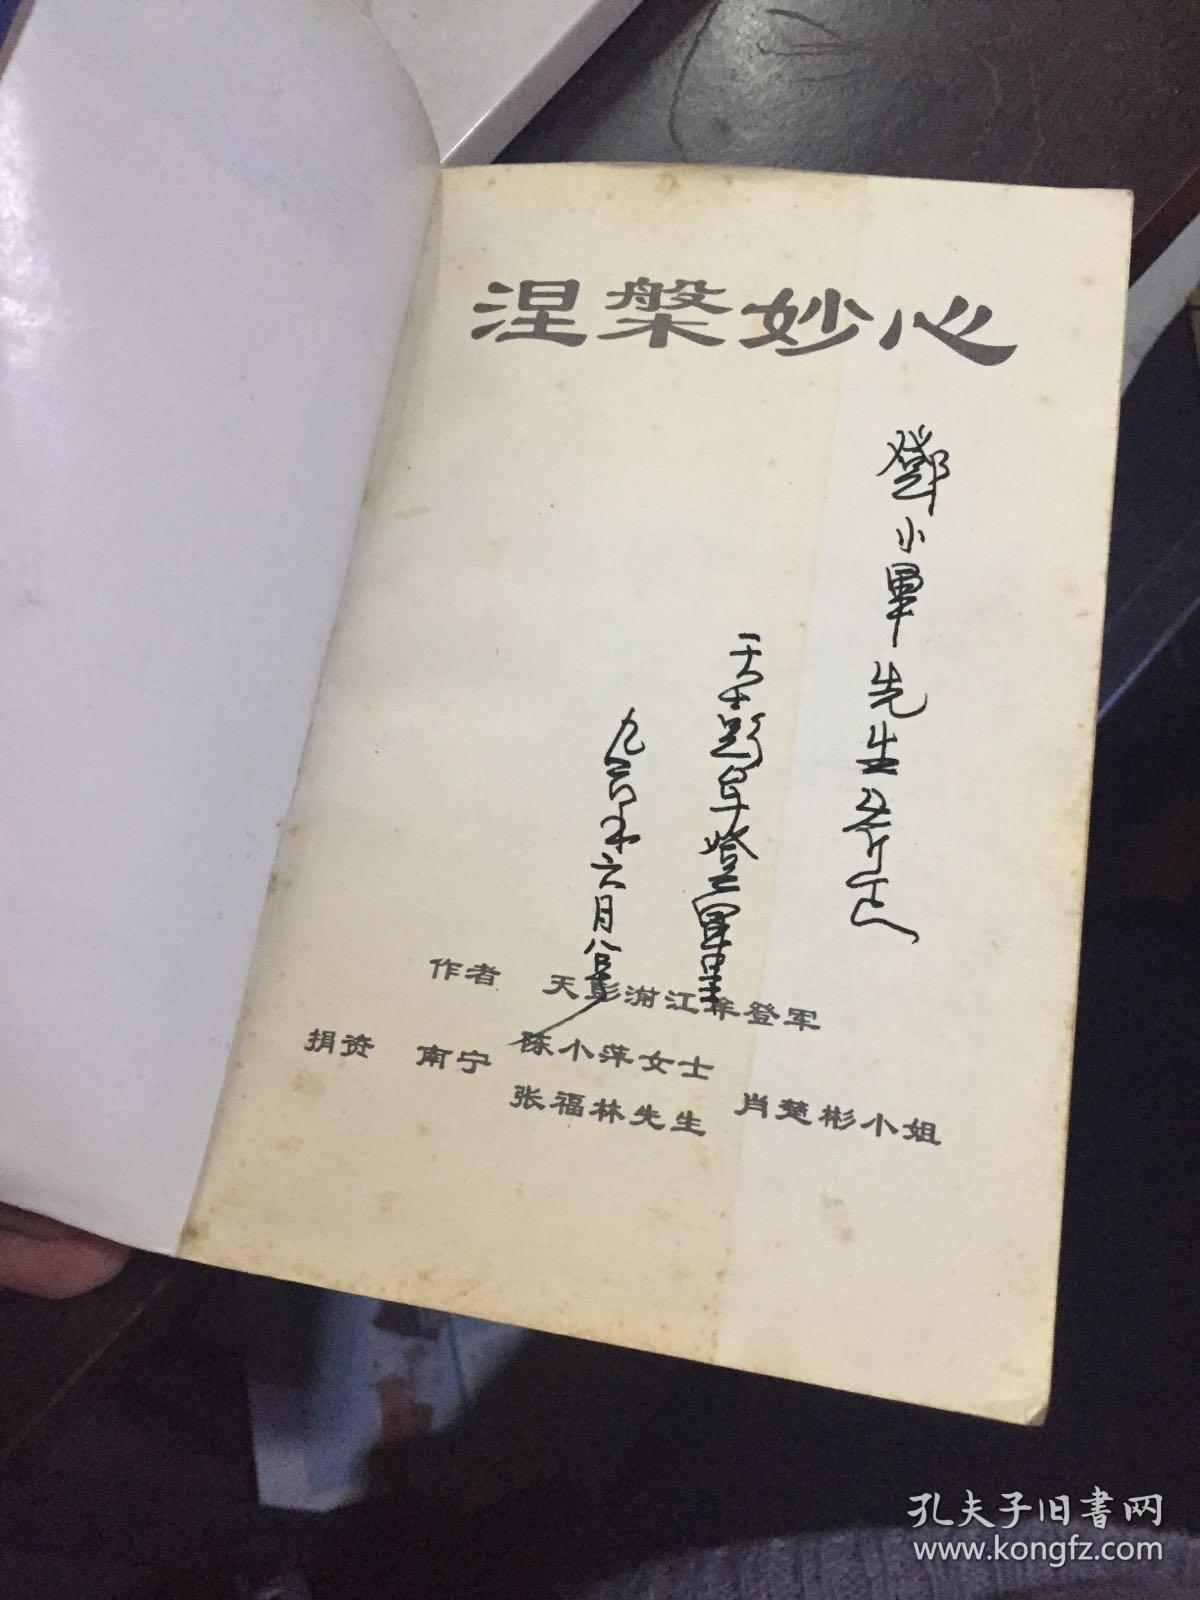 涅槃妙心
鄧小軍先生斧正
天士彭牟登軍
九六年六月八日
作者 天彭湔江牟登军
捐资 南宁 陈小萍女士
张福林先生 肖楚彬小姐
孔夫子旧书网
www.kongfz.com